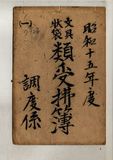 昭和十五年度
文具
状袋
類受払簿
調度係
(一)